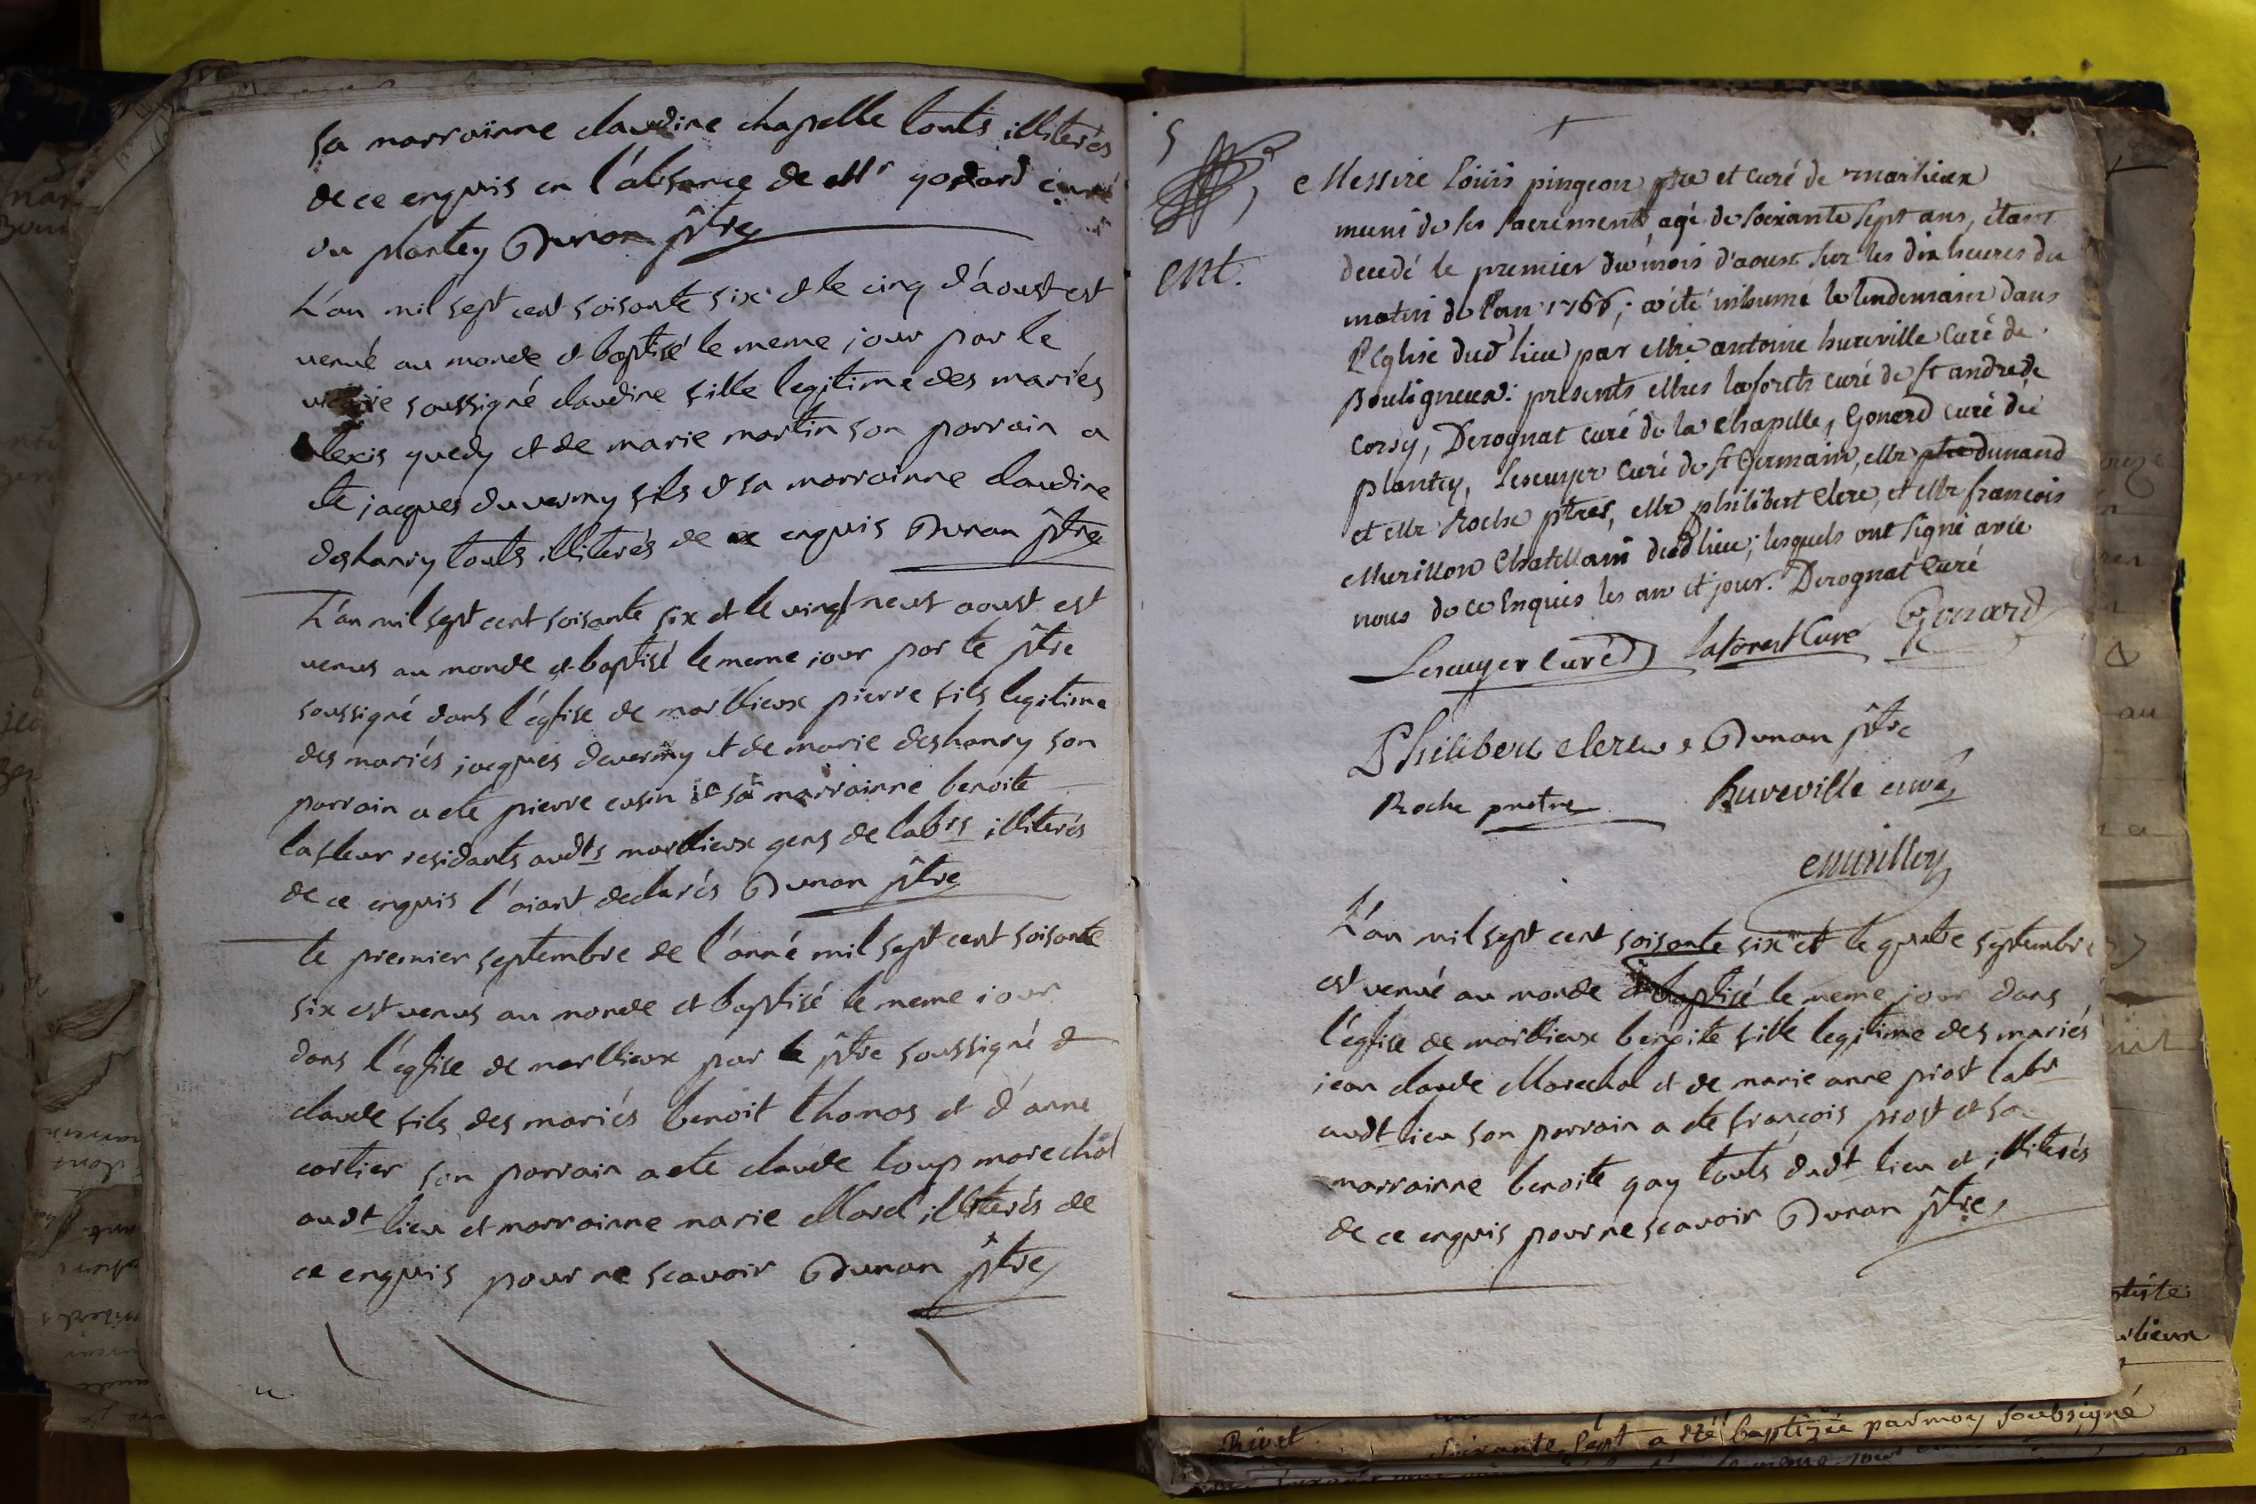 sa marrainne claudine chapelle touts illiterés
de ce enquis en l'absance de Mr gonard curé
du plantey Dunan ptre
L'an mil sept cent soisante six et le cinq d'aoust est
venué au monde et baptisé le meme jour par le
vicaire soussigné claudine fille legitime des mariés
alexis guedy et de marie martin son parrain a
ete jacques duverny fils et sa marrainne claudine
deshanry touts illiterés de ce enquis Dunan ptre
L'an mil sept cent soisante six et le vingt neuf aoust est
venus au monde et baptisé le meme jour par le ptre
soussigné dans l'église de marllieux pierre fils legitime
des mariés jacques deverny et de marie deshanry son
parrain a ete pierre cusin et sa marrainne benoite
lafleur residants audts marllieux gens de labrs illiterés
de ce enquis l'aiant declarés Dunan ptre
le premier septembre de l'anné mil sept cent soisante
six est venus au monde et baptisé le meme jour
dans l'église de marllieux par le ptre soussigné
claude fils des mariés benoit thomas et d'anne
cartier son parrain a ete claude loup marechal
audt lieu et marrainne marie Morel illiterés de
ce enquis pour ne scavoir Dunan ptre
5
ent.
Messire Louis pingeon ptre et curé de marlieux
muni de ses sacrements, agé de soixante sept ans, étant
decedé le premier du mois d'aoust sur les dix heures du
matin de l'an 1766; a été inhumé le lendemain dans
l'Eglise dud lieu par Mre antoine hureville Curé de
Bouligneux: presents Mres laforest curé de st andre de
Corsy, Derognat curé de la chapelle, Gonard curé du
plantey, Lescuyer Curé de st Germain, Mr dunand
et Mr Roche ptres, Mr philibert clerc, et Mr francois
Murillon Chatellain dud lieu; lesquels ont signé avec
nous de ce Enquis les an et jour. Derognat Curé
Lescuyer Curé laforest Curé Gonard
Philibert clerc Dunan ptre
Roche pretre Hureville curé
Murillon
L'an mil sept cent soisante six et le quatre septembre
est venué au monde et baptisé le meme jour dans
l'église de marllieux benoite fille legitime des mariés
jean claude Marechal et de marie anne prost labr
audt lieu son parrain a ete françois prost et sa
marrainne benoite gay touts dudt lieu et illiterés
de ce enquis pour ne scavoir Dunan ptre
Rivet
soixante sept a été baptizée par moy soubsigné